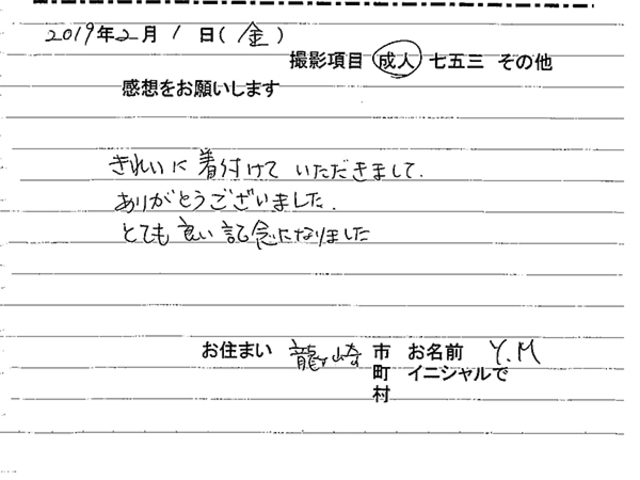 2019年2月1日(金)
撮影項目 成人 七五三 その他
感想をお願いします
きれいに着付けていただきまして.
ありがとうございました.
とても良い記念になりました
お住まい 龍ヶ崎 市 お名前 Y.M
町 イニシャルで
村